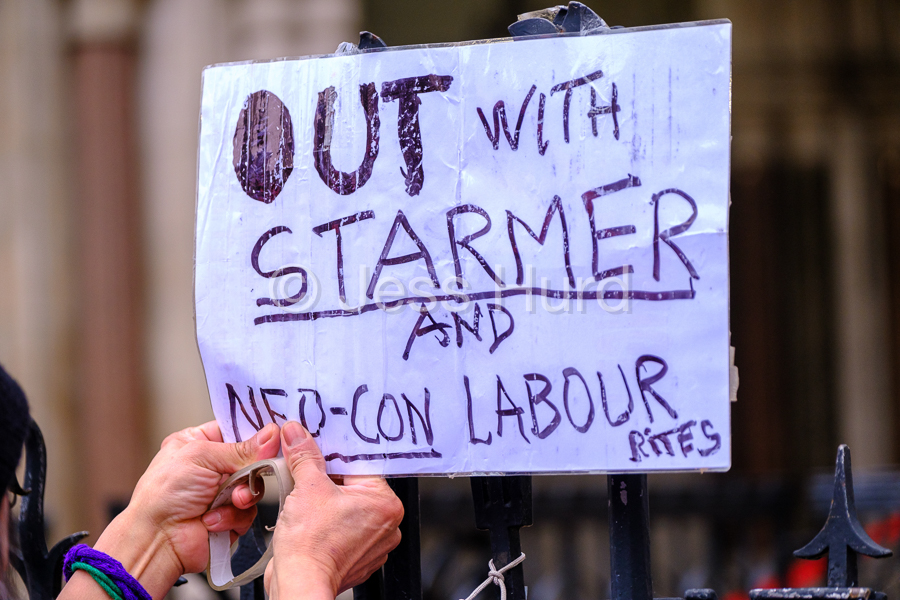 OUT WITH
STARMER
© Jess Hurd
AND
NEO-CON LABOUR
RITES